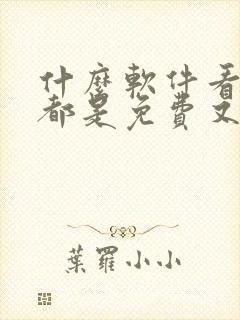 什麼軟件看
都是免費又
葉羅小小